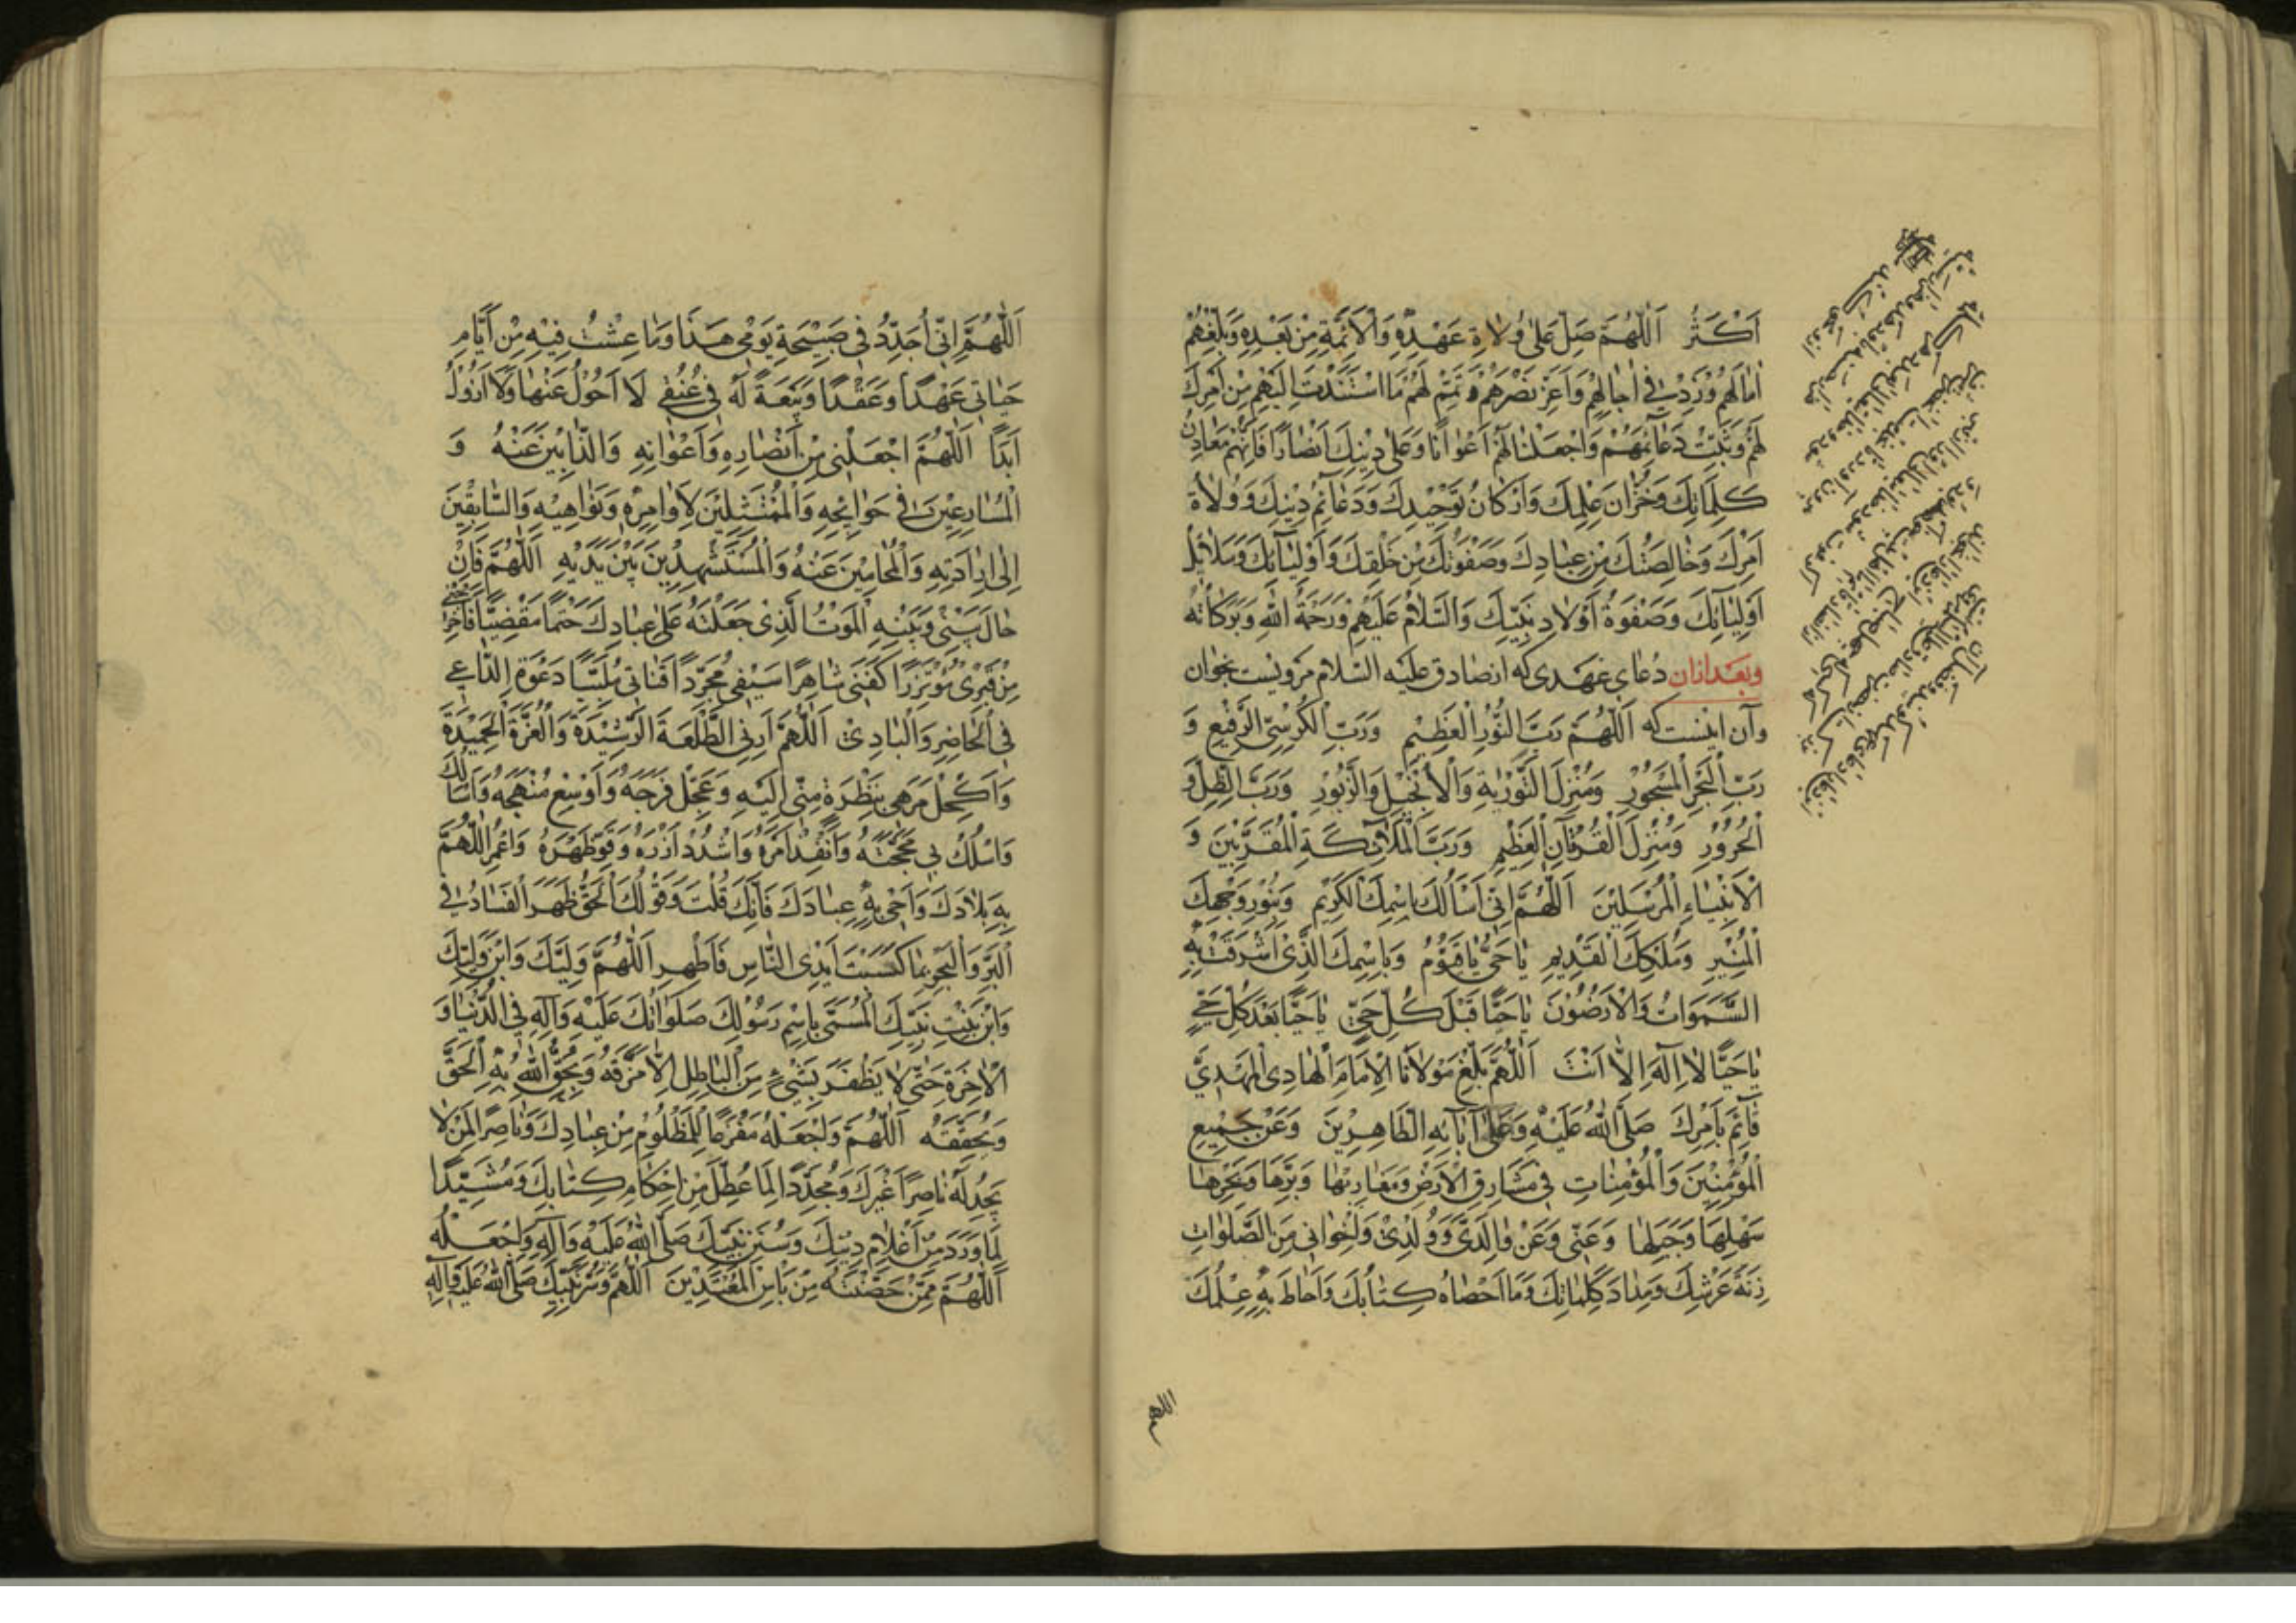 اَكْثَرُ اَللّٰهُمَّ صَلِّ عَلٰى وُلاةِ عَهْدِهِ وَالْاَئِمَّةِ مِنْ بَعْدِهِ وَبَلِّغْهُمْ
اٰمالَهُمْ وَزِدْ فِى اٰجالِهِمْ وَاَعِزَّ نَصْرَهُمْ وَتَمِّمْ لَهُمْ مَا اسْتَنَدْتَ اِلَيْهِمْ مِنْ اَمْرِكَ
لَهُمْ وَثَبِّتْ دَعآئِمَهُمْ وَاجْعَلْنا لَهُمْ اَعْوانًا وَعَلٰى دِيْنِكَ اَنْصارًا فَاِنَّهُمْ مَعادِنُ
كَلِمَاتِكَ وَخُزّانُ عِلْمِكَ وَاَرْكانُ تَوْحِيْدِكَ وَدَعآئِمُ دِيْنِكَ وَوُلاةُ
اَمْرِكَ وَخالِصَتُكَ مِنْ عِبادِكَ وَصَفْوَتُكَ مِنْ خَلْقِكَ وَاَوْلِيٰآئِكَ وَسَلائِلُ
اَوْلِيٰآئِكَ وَصَفْوَةُ اَوْلادِ نَبِيِّكَ وَالسَّلامُ عَلَيْهِمْ وَرَحْمَةُ اللهِ وَبَرَكاتُهُ
وبعد ازان دُعاى عَهْدى كه از صادق عليه السّلام مرويست بخوان
وآن اينست كه اَللّٰهُمَّ رَبَّ النُّوْرِ الْعَظِيْمِ وَرَبَّ الْكُرْسِيِّ الرَّفِيْعِ وَ
رَبَّ الْبَحْرِ الْمَسْجُوْرِ وَمُنْزِلَ التَّوْرٰيةِ وَالْاِنْجِيْلِ وَالزَّبُوْرِ وَرَبَّ الظِّلِّ وَ
الْحُرُوْرِ وَمُنْزِلَ الْقُرْاٰنِ الْعَظِيْمِ وَرَبَّ الْمَلآئِكَةِ الْمُقَرَّبِيْنَ وَ
الْاَنْبِيٰاءِ الْمُرْسَلِيْنَ اَللّٰهُمَّ اِنّى اَسْاَلُكَ بِاسْمِكَ الْكَرِيْمِ وَبِنُوْرِ وَجْهِكَ
الْمُنِيْرِ وَمُلْكِكَ الْقَدِيْمِ يٰا حَيُّ يٰا قَيُّوْمُ وَبِاسْمِكَ الَّذِىْ اَشْرَقَتْ بِهِ
السَّمَوَاتُ وَالْاَرَضُوْنَ يٰا حَيًّا قَبْلَ كُلِّ حَيٍّ يٰا حَيًّا بَعْدَ كُلِّ حَيٍّ
يٰا حَيًّا لا اِلٰهَ اِلّا اَنْتَ اَللّٰهُمَّ بَلِّغْ مَوْلانَا الْاِمَامَ الْهادِىَ الْمَهْدِيَّ
قٰآئِمَ بِاَمْرِكَ صَلَّى اللهُ عَلَيْهِ وَعَلٰى آبآئِهِ الطّاهِرِيْنَ وَعَنْ جَمِيْعِ
الْمُؤْمِنِيْنَ وَالْمُؤْمِنٰاتِ فِى مَشٰارِقِ الْاَرْضِ وَمَغٰارِبِهٰا وَبَرِّهٰا وَبَحْرِهٰا
سَهْلِهٰا وَجَبَلِهٰا وَعَنّى وَعَنْ وٰالِدَىَّ وَوُلْدِىْ وَاِخْوانى مِنَ الصَّلَوٰاتِ
زِنَةَ عَرْشِكَ وَمِدٰادَ كَلِمٰاتِكَ وَمَا اَحْصٰاهُ كِتٰابُكَ وَاَحٰاطَ بِهِ عِلْمُكَ
اللهم
اَللّٰهُمَّ اِنّى اُجَدِّدُ فى صَبِيْحَةِ يَوْمى هَذَا وَمٰا عِشْتُ فِيْهِ مِنْ اَيّامِ
حَيٰاتى عَهْدًا وَعَقْدًا وَبَيْعَةً لَهُ فى عُنُقى لَا اَحُوْلُ عَنْهٰا وَلَا اَزُوْلُ
اَبَدًا اَللّٰهُمَّ اجْعَلْنى مِنْ اَنْصٰارِهِ وَاَعْوٰانِهِ وَالذّابّيْنَ عَنْهُ وَ
الْمُسٰارِعِيْنَ فى حَوٰائِجِهِ وَالْمُمْتَثِلِيْنَ لِاَوٰامِرِهِ وَنَوٰاهِيْهِ وَالسّٰابِقِيْنَ
اِلٰى اِرٰادَتِهِ وَالْمُحٰامِيْنَ عَنْهُ وَالْمُسْتَشْهَدِيْنَ بَيْنَ يَدَيْهِ اَللّٰهُمَّ فَاِنْ
حٰالَ بَيْنى وَبَيْنَهِ الْمَوْتُ الَّذِىْ جَعَلْتَهُ عَلٰى عِبٰادِكَ حَتْمًا مَقْضِيًّا فَاَخْرِجْنى
مِنْ قَبْرِىْ مُؤْتَزِرًا كَفَنى شٰاهِرًا سَيْفى مُجَرِّدًا قَنٰاتى مُلَبِّيًا دَعْوَةَ الدّٰاعى
فِى الْحٰاضِرِ وَالْبٰادِىْ اَللّٰهُمَّ اَرِنِى الطَّلْعَةَ الرَّشِيْدَةَ وَالْغُرَّةَ الْحَمِيْدَةَ
وَاكْحَلْ مَرَهى بِنَظْرَةٍ مِنّى اِلَيْهِ وَعَجِّلْ فَرَجَهُ وَاَوْسِعْ مَنْهَجَهُ وَاَسْاَلُكَ
وَاسْلُكْ بى مَحَجَّتَهُ وَاَنْفِذْ اَمْرَهُ وَاشْدُدْ اَزْرَهُ وَقَوِّ ظَهْرَهُ وَاعْمُرِ اللّٰهُمَّ
بِهِ بِلادَكَ وَاَحْىِ بِهِ عِبٰادَكَ فَاِنَّكَ قُلْتَ وَقَوْلُكَ الْحَقُّ ظَهَرَ الْفَسٰادُ فِى
الْبَرِّ وَالْبَحْرِ بِمٰا كَسَبَتْ اَيْدِى النّٰاسِ فَاَظْهِرِ اَللّٰهُمَّ وَلِيَّكَ وَابْنَ وَلِيِّكَ
وَابْنَ بِنْتِ نَبِيِّكَ الْمُسَمّٰى بِاسْمِ رَسُوْلِكَ صَلَوٰاتُكَ عَلَيْهِ وَآلِهِ فِى الدُّنْيٰا وَ
الْاٰخِرَةِ حَتّٰى لا يَظْفَرَ بِشَىْءٍ مِنَ الْبٰاطِلِ اِلّا مَزَّقَهُ وَيُحِقُّ اللهُ بِهِ الْحَقَّ
وَيُحَقِّقَهُ اَللّٰهُمَّ وَاجْعَلْهُ مَفْزَعًا لِلْمَظْلُوْمِ مِنْ عِبٰادِكَ وَنٰاصِرًا لِمَنْ لا
يَجِدُ لَهُ نٰاصِرًا غَيْرَكَ وَمُجَدِّدًا لِمٰا عُطِّلَ مِنْ اَحْكٰامِ كِتٰابِكَ وَمُشَيِّدًا
لِمٰا وَرَدَ مِنْ اَعْلامِ دِيْنِكَ وَسُنَنِ نَبِيِّكَ صَلَّى اللهُ عَلَيْهِ وَآلِهِ وَاجْعَلْهُ
اَللّٰهُمَّ مِمَّنْ حَصَّنْتَهُ مِنْ بَاْسِ الْمُعْتَدِيْنَ اَللّٰهُمَّ وَسُرَّ نَبِيَّكَ صَلَّى اللهُ عَلَيْهِ وَآلِهِ